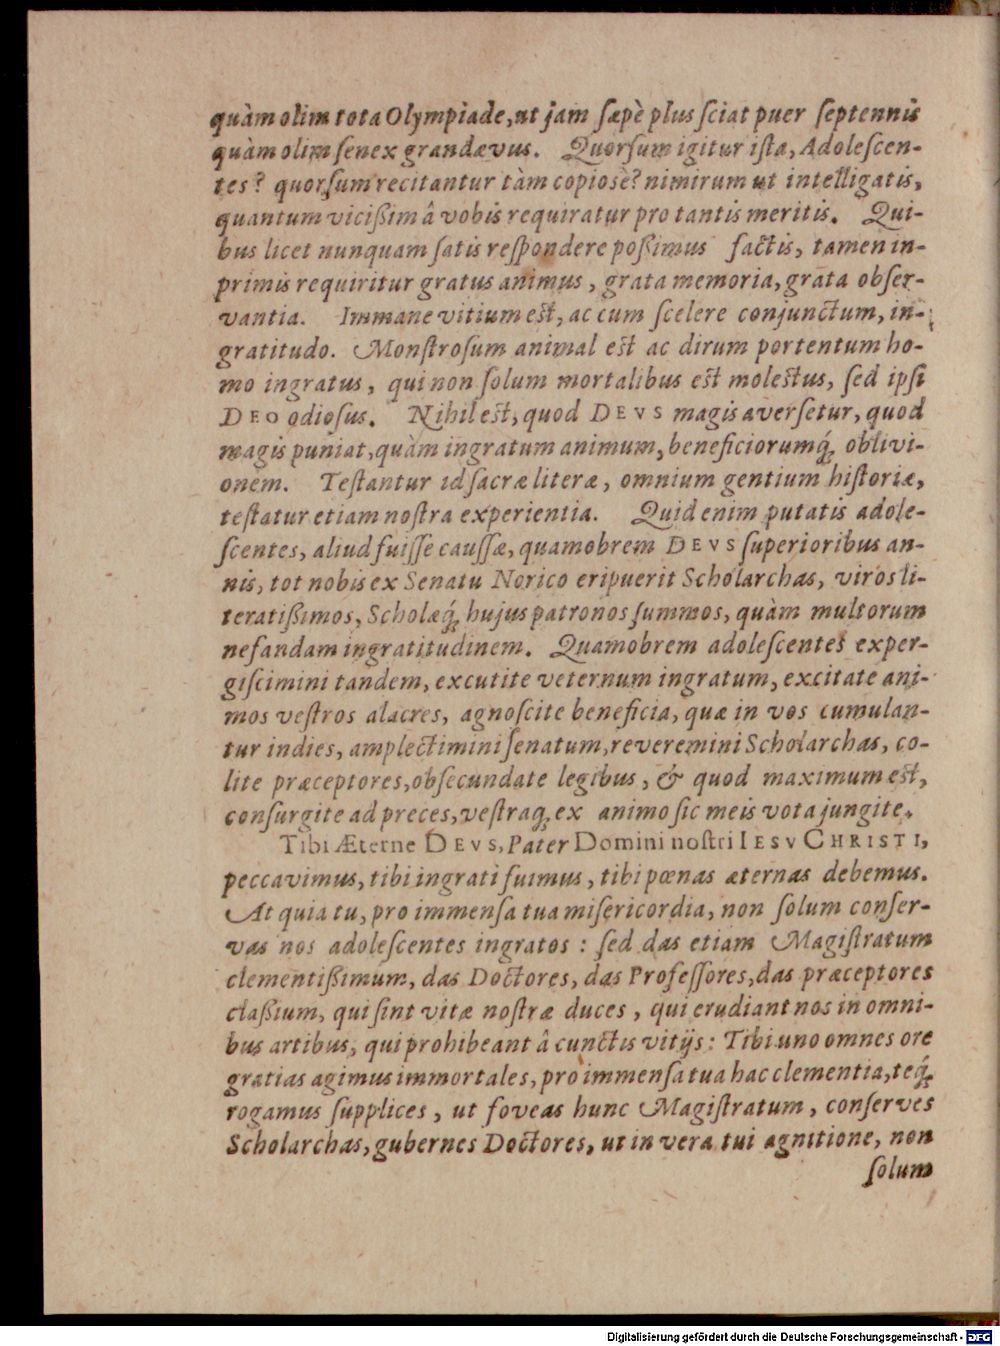 quàm olim tota Olympiade, ut jam ſæpè plus ſciat puer ſeptennis
quàm olim ſenex grandævus. Quorſum igitur iſta, Adoleſcen-
tes? quorſum recitantur tàm copiosè? nimirum ut intelligatis,
quantum vicißim â vobis requiratur pro tantis meritis. Qui-
bus licet nunquam ſatis reſpondere poßimus factis, tamen in-
primis requiritur gratus animus, grata memoria, grata obſer-
vantia. Immane vitium est, ac cum ſcelere conjunctum, in-
gratitudo. Monſtroſum animal est ac dirum portentum ho-
mo ingratus, qui non ſolum mortalibus est molestus, ſed ipſi
DEO odioſus. Nihil est, quod DEVS magis averſetur, quod
magis puniat, quàm ingratum animum, beneficiorumq́; oblivi-
onem. Teſtantur id ſacræ literæ, omnium gentium hiſtoriæ,
teſtatur etiam noſtra experientia. Quid enim putatis adole-
ſcentes, aliud fuiſſe cauſſæ, quamobrem DEVS ſuperioribus an-
nis, tot nobis ex Senatu Norico eripuerit Scholarchas, viros li-
teratißimos, Scholæq́; hujus patronos ſummos, quàm multorum
nefandam ingratitudinem. Quamobrem adoleſcentes exper-
giſcimini tandem, excutite veternum ingratum, excitate ani-
mos veſtros alacres, agnoſcite beneficia, quæ in vos cumulan-
tur indies, amplectimini ſenatum, reveremini Scholarchas, co-
lite præceptores, obſecundate legibus, & quod maximum est,
conſurgite ad preces, veſtraq; ex animo ſic meis vota jungite.
Tibi Æterne DEVS, Pater Domini noſtri IESV CHRISTI,
peccavimus, tibi ingrati fuimus, tibi pœnas æternas debemus.
At quia tu, pro immenſa tua miſericordia, non ſolum conſer-
vas nos adoleſcentes ingratos: ſed das etiam Magiſtratum
clementißimum, das Doctores, das Profeſſores, das præceptores
claßium, qui ſint vitæ noſtræ duces, qui erudiant nos in omni-
bus artibus, qui prohibeant â cunctis vitijs: Tibi uno omnes ore
gratias agimus immortales, pro immenſa tua hac clementia, teq́;
rogamus ſupplices, ut foveas hunc Magiſtratum, conſerves
Scholarchas, gubernes Doctores, ut in vera tui agnitione, non
ſolum
Digitalisierung gefördert durch die Deutsche Forschungsgemeinschaft - DFG